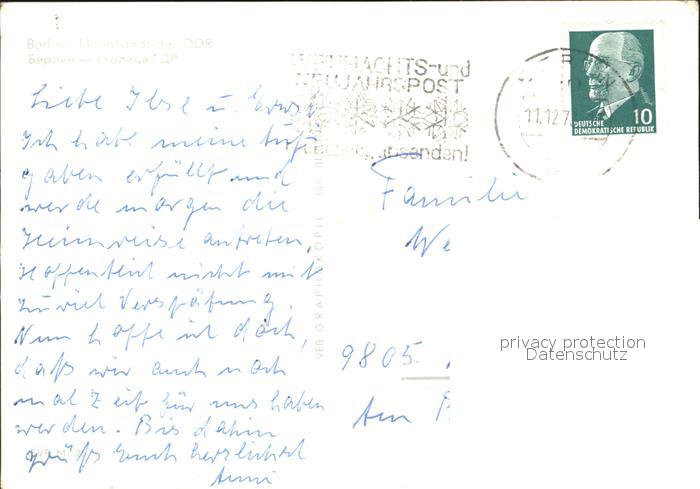 Berlin - Hauptstadt der DDR
Берлин — столица ГДР
WEIHNACHTS-und
NEUJAHRSPOST
absenden!
11.12.7
10
DEUTSCHE
DEMOKRATISCHE REPUBLIK
Liebe Ilse u.
Ich habe meine Auf-
gaben erfüllt und
werde morgen die
Heimreise antreten,
Hoffentlich nicht mit
zuviel Verspätung.
Nun hoffe ich doch,
daß wir auch noch
mal Zeit für uns haben
werden. Bis dahin
grüßt Euch herzlichst
Anni
VEB GRAPHOKOPIE
Familie
We
9805
Am
privacy protection
Datenschutz